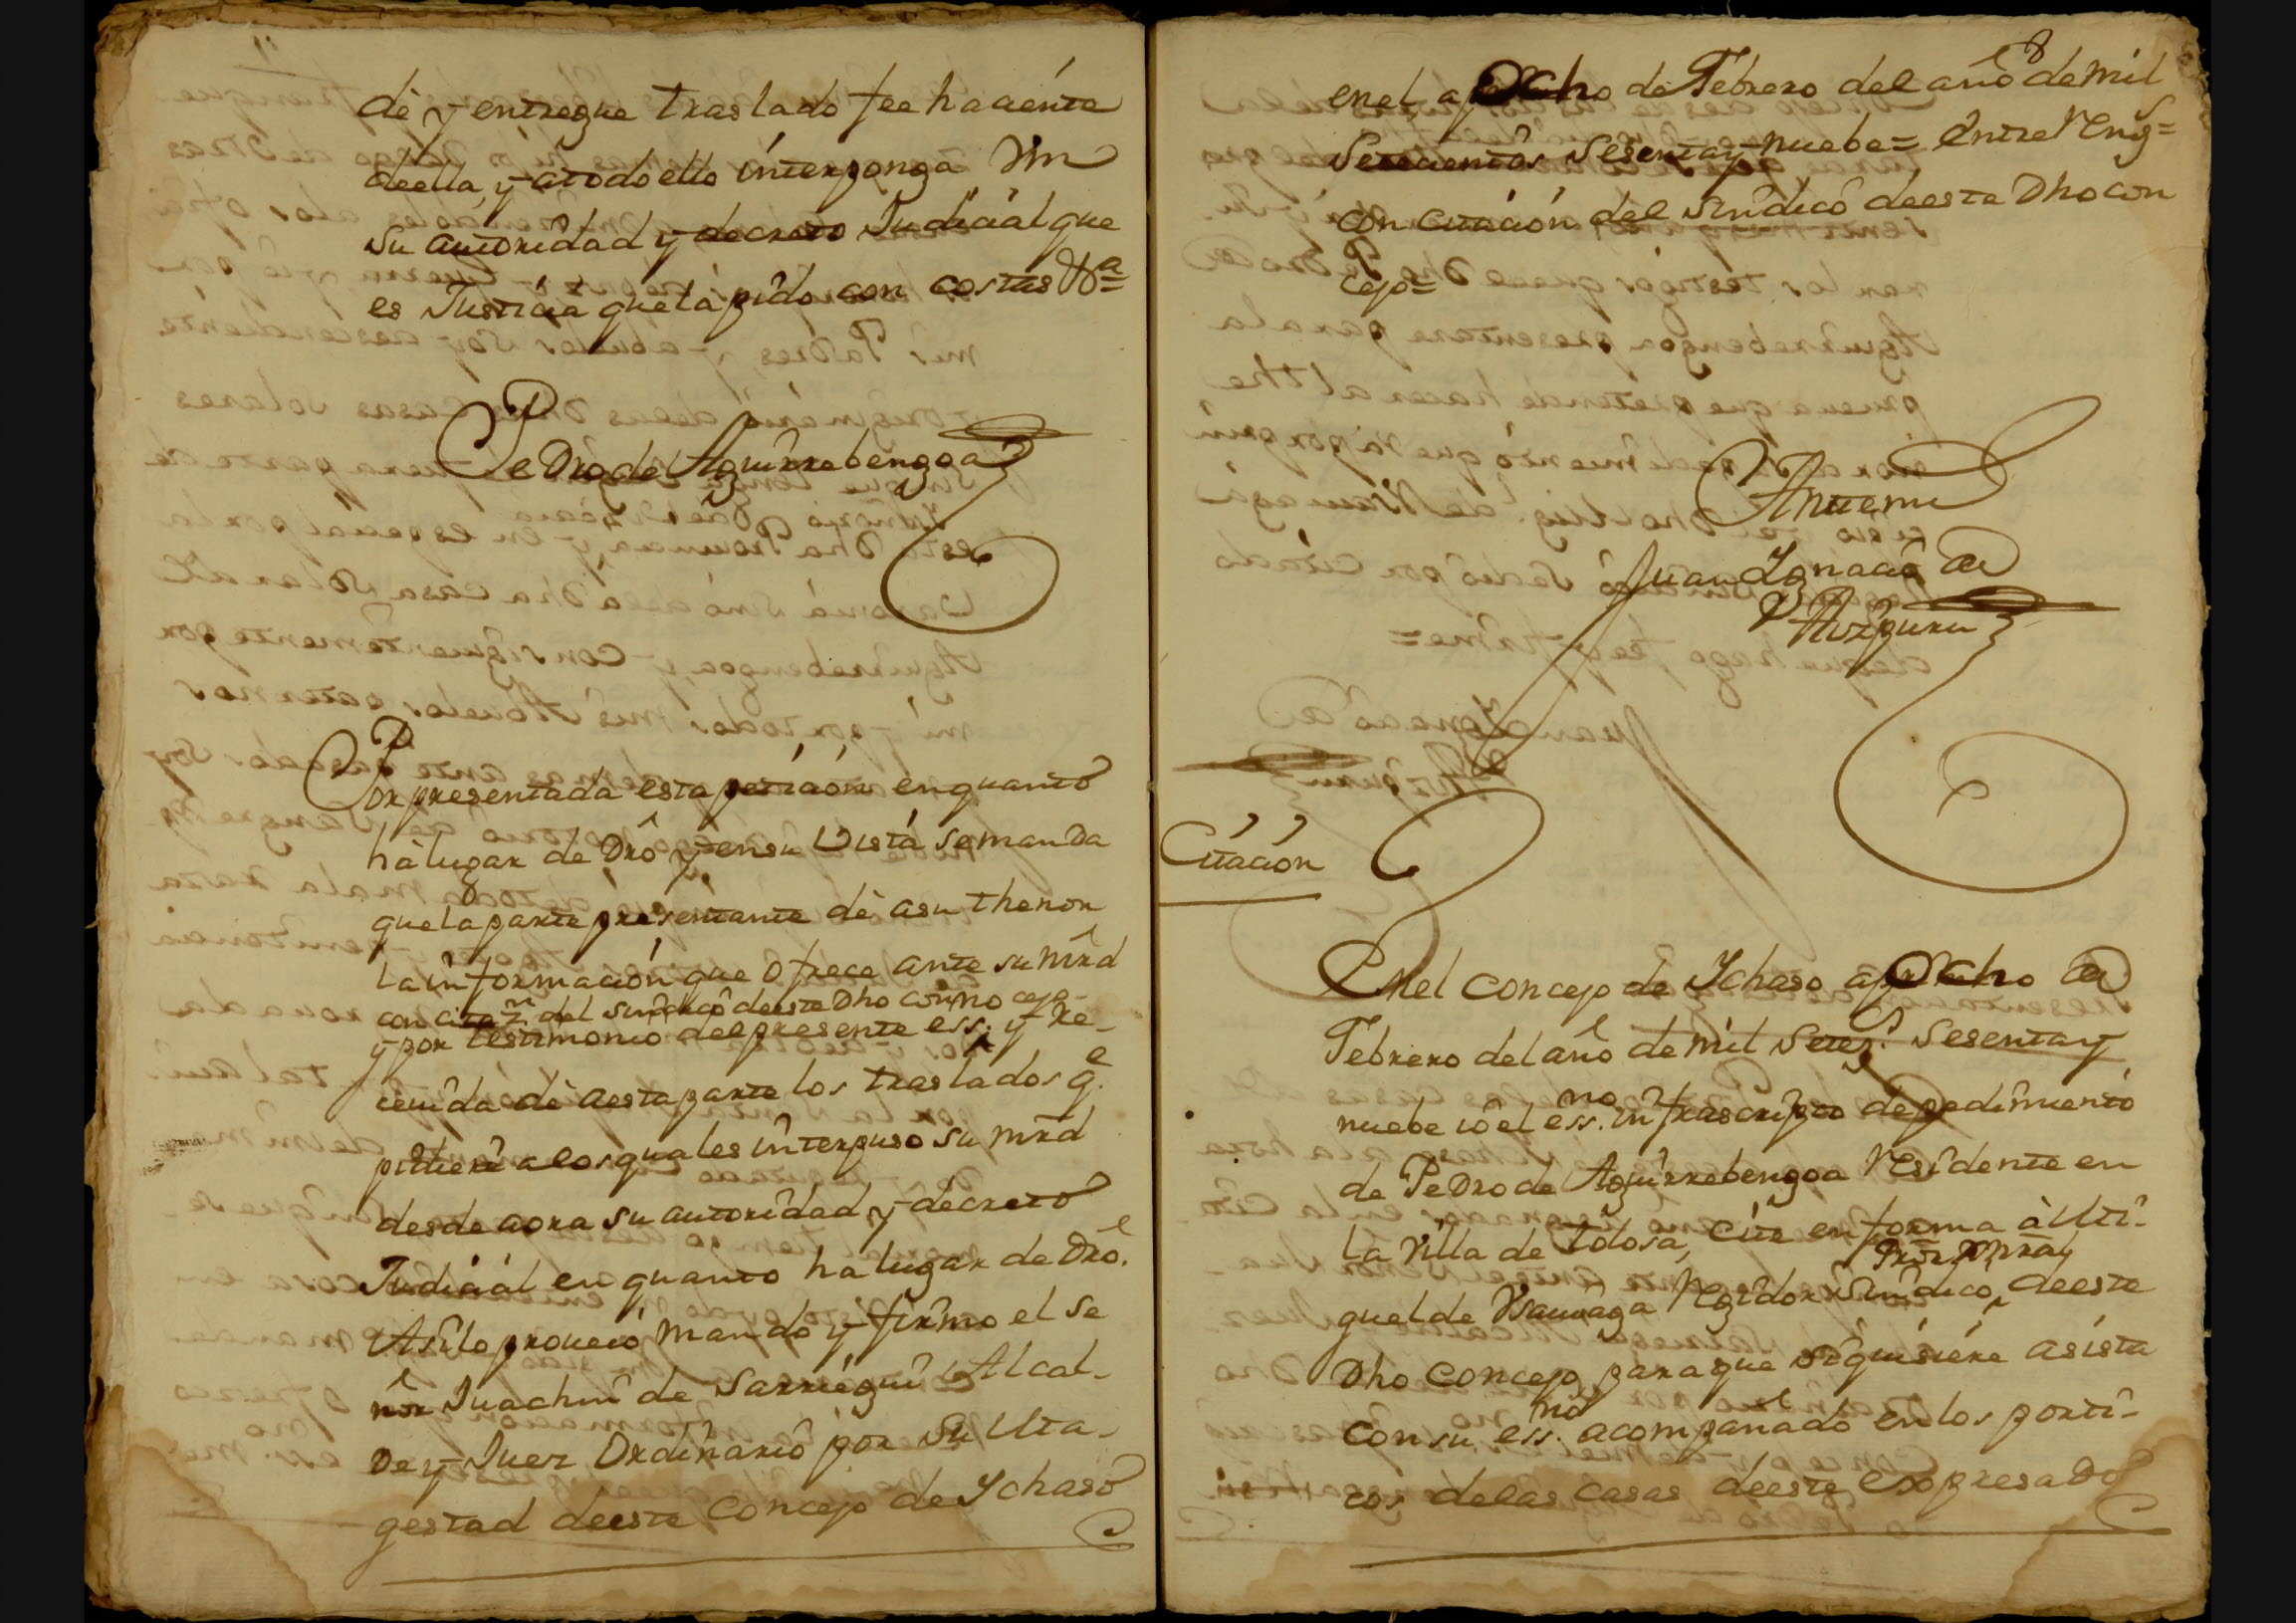 dè y entregue traslado fee haciente
deella, y atodo ello interponga Vm
su autoridad y decreto Judicial que
es Justicia que la pido con costas &ª=
Pedro de Aguirrebengoa
Por presentada esta peticion en quanto
hà lugar de Dro y en su Vista se manda
que la parte presentante dè asu thenor
la informacion que ofrece ante su mrd
con citazn del sindico deeste Dho concejo
y por testimonio del presente ess.no y re-
cevida dè aesta parte los traslados q.e
pidiere alos quales interpuso su mrd
desde aora su autoridad y decreto
Judicial en quanto ha lugar de Dro.
Asilo proveió mando y firmo el Se
ñor Juachin de Sarriegui Alcal-
de y Juez Ordinario por su Ma-
gestad deeste Concejo de Ychaso
8
en el, a ocho de Febrero del año de mil
Setecientos Sesentay nuebe= Entre rengs=
con citacion del sindico deeste Dho con
cejo=
Antemi
Juan Ygnacio de
Aizpuru
Citacion
Enel Concejo de Ychaso a ocho de
Febrero del año de mil Setezs. Sesentay
nuebe io el ess.no infrascripto de pedimiento
de Pedro de Aguirrebengoa residente en
la Villa de tolosa, Cite en forma à Mi-
guel de Regidor Sindico, Pror Gnral deeste
Dho Concejo para que siquisiere asista
Con su ess.no acompañado en los porti-
cos delas casas deeste Expresado